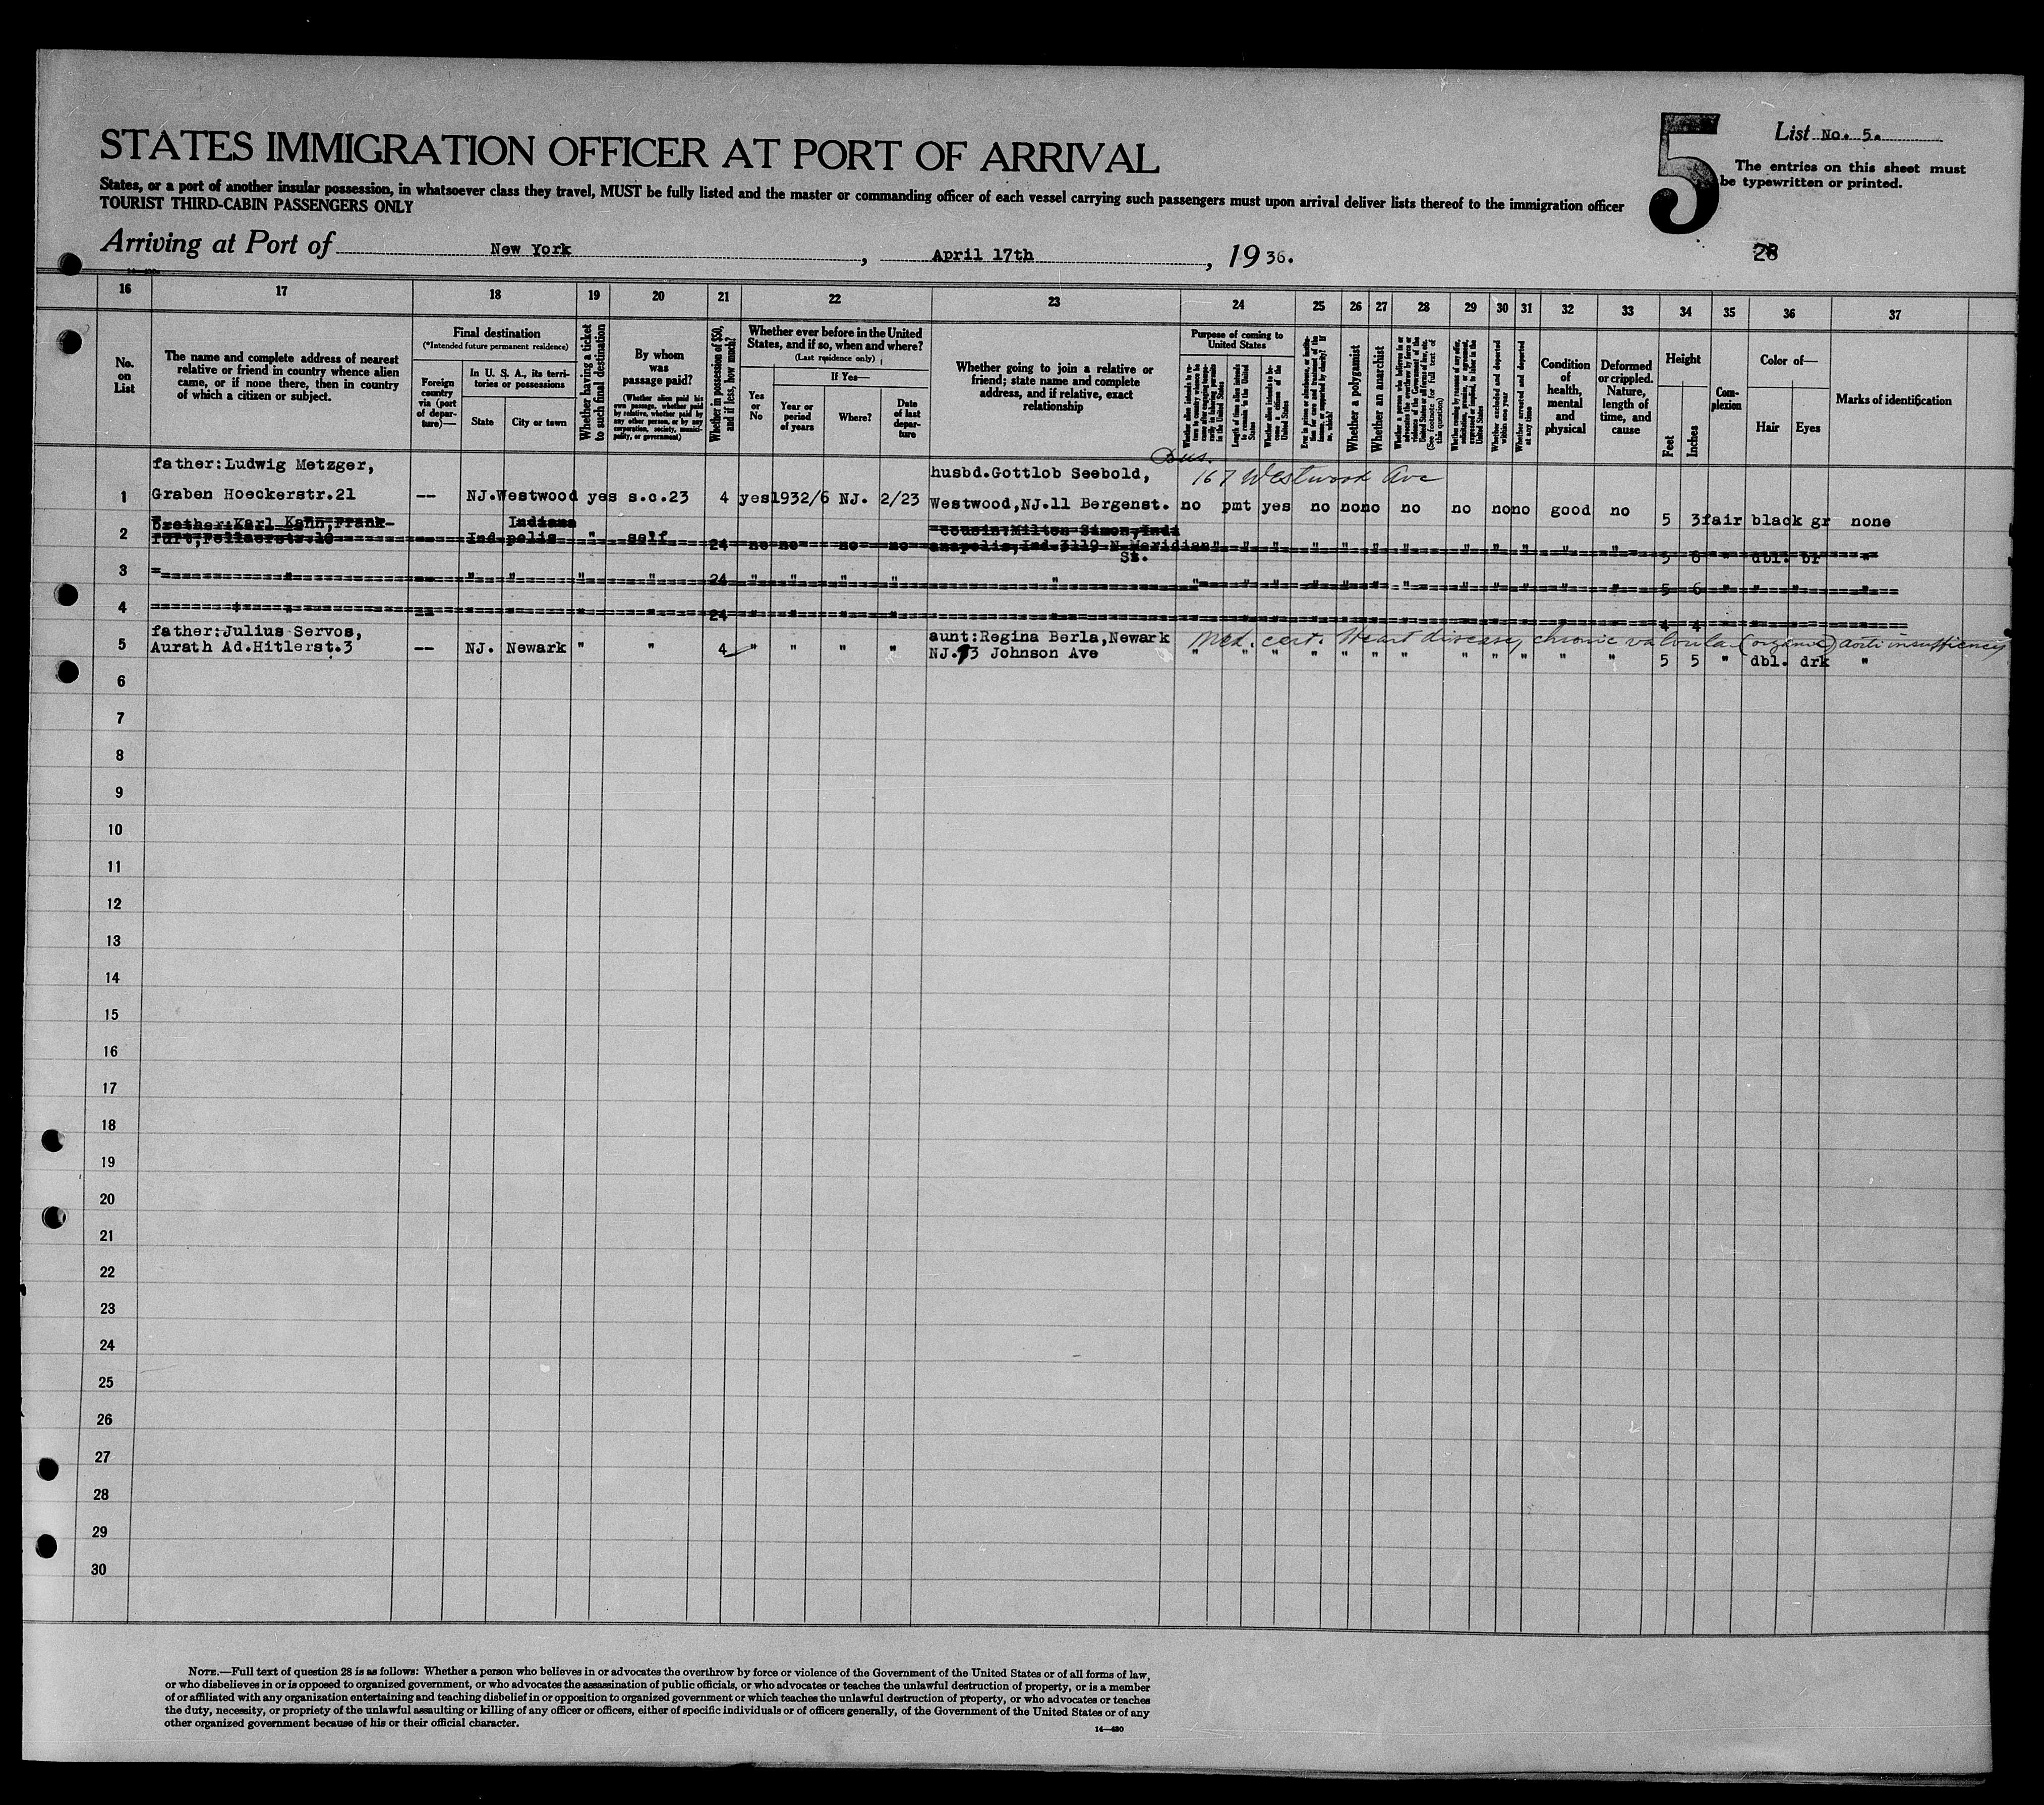 STATES IMMIGRATION OFFICER AT PORT OF ARRIVAL
5
List No. 5.
The entries on this sheet must
be typewritten or printed.
States, or a port of another insular possession, in whatsoever class they travel, MUST be fully listed and the master or commanding officer of each vessel carrying such passengers must upon arrival deliver lists thereof to the immigration officer
TOURIST THIRD-CABIN PASSENGERS ONLY
Arriving at Port of New York, April 17th, 1936.
28
16 17 18 19 20 21 22 23 24 25 26 27 28 29 30 31 32 33 34 35 36 37
No. on List
The name and complete address of nearest relative or friend in country whence alien came, or if none there, then in country of which a citizen or subject.
Final destination
(*Intended future permanent residence)
Foreign country via (port of departure)—
In U. S. A., its territories or possessions
State
City or town
Whether having a ticket to such final destination
By whom was passage paid?
(Whether alien paid his own passage, whether paid by relative, whether paid by any other person, or by any corporation, society, municipality, or government)
Whether in possession of $50, and if less, how much?
Whether ever before in the United States, and if so, when and where?
(Last residence only)
Yes or No
If Yes—
Year or period of years
Where?
Date of last departure
Whether going to join a relative or friend; state name and complete address, and if relative, exact relationship
Purpose of coming to United States
Length of time alien intends to remain in the United States
Whether alien intends to become a citizen of the United States
Whether a polygamist
Whether an anarchist
(See footnote for full text of this question)
Whether excluded and deported within one year
Whether arrested and deported at any time
Condition of health, mental and physical
Deformed or crippled. Nature, length of time, and cause
Height
Feet
Inches
Complexion
Color of—
Hair
Eyes
Marks of identification
1 father:Ludwig Metzger,
Graben Hoeckerstr.21 -- NJ. Westwood yes s.o.23 4 yes 1932/6 NJ. 2/23
husbd.Gottlob Seebold,
Westwood,NJ.11 Bergenst.
167 Westwood Ave
no pmt yes no no no no no no no good no 5 3 fair black gr none
2 brother:Karl Kahn,Frank-
furt, -- Indiana
Indpolis " self 24 no no no no
cousin:Milton Simon,Indi
anapolis,Ind.3119 N.Meridian
St.
" " " " " " " " " " " " 5 6 " dbl. br "
3 " -- " " " " 24 " " " " " " " " " " " " " " " " " " 5 6 " " " "
4 -- 24 " " " " 4 4
5 father:Julius Servos,
Aurath Ad.Hitlerst.3 -- NJ. Newark " " 4 " " " "
aunt:Regina Berla,Newark
NJ.93 Johnson Ave
Med. cert. Heart disease, chronic valvular (organic) aortic insufficiency
" " " " " " " " " " " " 5 5 " dbl. drk "
6
7
8
9
10
11
12
13
14
15
16
17
18
19
20
21
22
23
24
25
26
27
28
29
30
NOTE.—Full text of question 28 is as follows: Whether a person who believes in or advocates the overthrow by force or violence of the Government of the United States or of all forms of law,
or who disbelieves in or is opposed to organized government, or who advocates the assassination of public officials, or who advocates or teaches the unlawful destruction of property, or is a member
of or affiliated with any organization entertaining and teaching disbelief in or opposition to organized government or which teaches the unlawful destruction of property, or who advocates or teaches
the duty, necessity, or propriety of the unlawful assaulting or killing of any officer or officers, either of specific individuals or of officers generally, of the Government of the United States or of any
other organized government because of his or their official character.
14—430